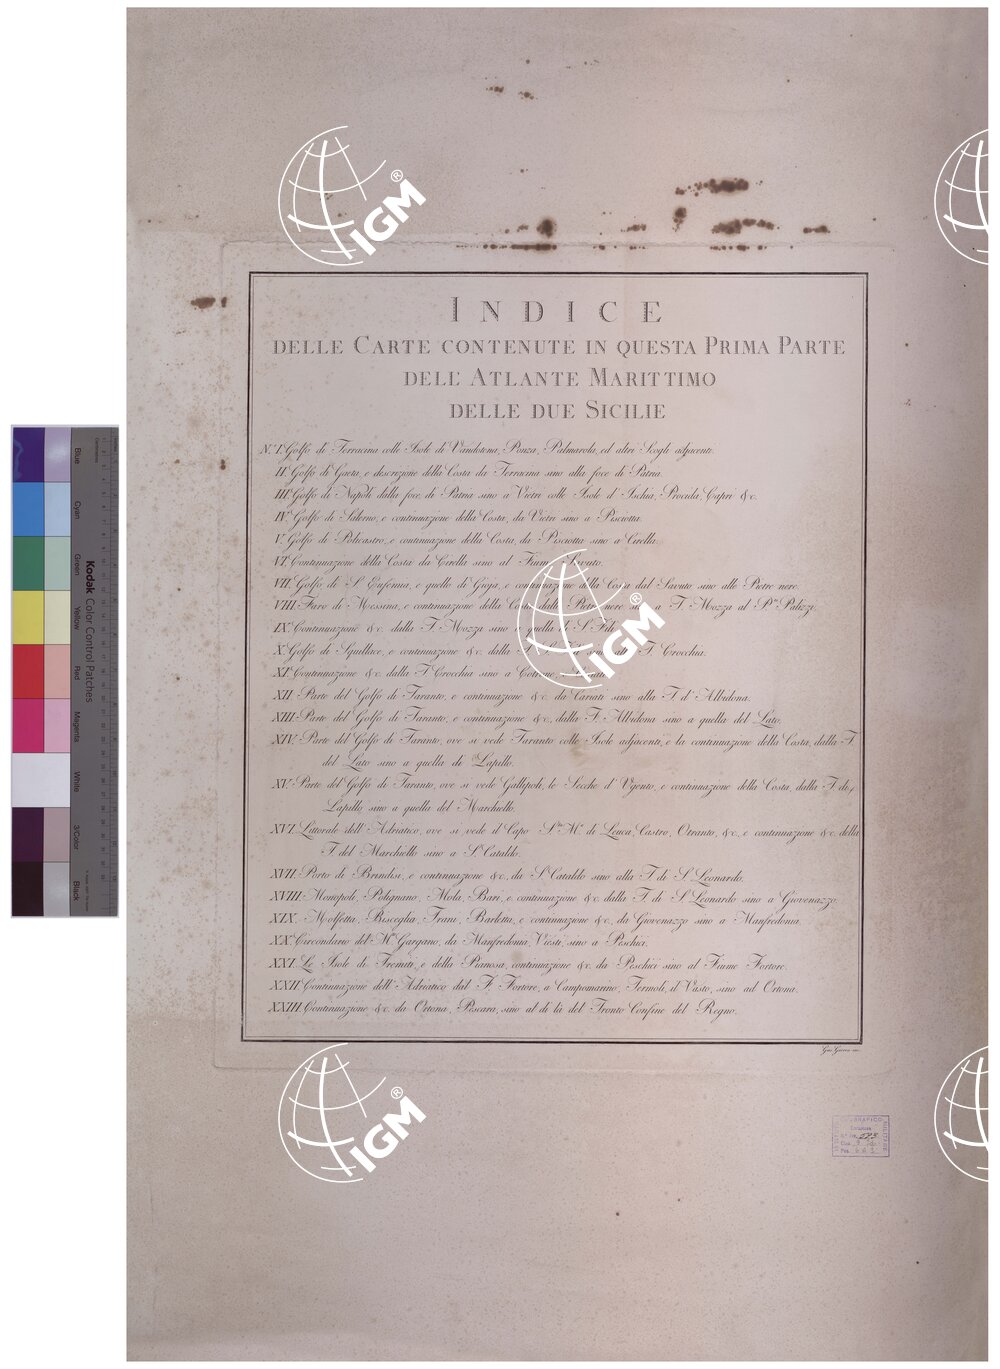 INDICE
DELLE CARTE CONTENUTE IN QUESTA PRIMA PARTE
DELL' ATLANTE MARITTIMO
DELLE DUE SICILIE
N.º I. Golfo di Terracina colle Isole di Vandotena, Ponza, Palmarola, ed altri Scogli adjacenti.
II. Golfo di Gaeta, e descrizione della Costa da Terracina sino alla foce di Patria.
III. Golfo di Napoli dalla foce di Patria sino a Vietri colle Isole d'Ischia, Procida, Capri &c.
IV. Golfo di Salerno, e continuazione della Costa, da Vietri sino a Pisciotta.
V. Golfo di Policastro, e continuazione della Costa, da Pisciotta sino a Cirella.
VI. Continuazione della Costa da Cirella sino al Fiume Savuto.
VII. Golfo di S. Eufemia, e quello di Gioja, e continuazione della Costa dal Savuto sino alle Pietre nere.
VIII. Faro di Messina, e continuazione della Costa dalle Pietre nere sino a F. Mozza al P.º Palizzi.
IX. Continuazione &c. dalla F. Mozza sino a quella di S.
X. Golfo di Squillace, e continuazione &c. dalla sino alla F. Crocchia.
XI. Continuazione &c. dalla F. Crocchia sino a Cotrone,
XII. Parte del Golfo di Taranto, e continuazione &c. da Cariati sino alla F. d'Albidona.
XIII. Parte del Golfo di Taranto, e continuazione &c. dalla F. Albidona sino a quella del Lato.
XIV. Parte del Golfo di Taranto, ove si vede Taranto colle Isole adjacenti, e la continuazione della Costa, dalla F.
del Lato sino a quella di Lapillo.
XV. Parte del Golfo di Taranto, ove si vede Gallipoli, le Secche d'Ugento, e continuazione della Costa, dalla F. di
Lapillo, sino a quella del Marchiello.
XVI. Littorale dell'Adriatico, ove si vede il Capo S.ta M.ª di Leuca, Castro, Otranto, &c., e continuazione &c. della
F. del Marchiello sino a S. Cataldo.
XVII. Porto di Brindisi, e continuazione &c. da S. Cataldo sino alla F. di S. Leonardo.
XVIII. Monopoli, Polignano, Mola, Bari, e continuazione &c. dalla F. di S. Leonardo sino a Giovenazzo.
XIX. Molfetta, Bisceglia, Trani, Barletta, e continuazione &c. da Giovenazzo sino a Manfredonia.
XX. Circondario del M.te Gargano, da Manfredonia, Viesti, sino a Peschici.
XXI. Le Isole di Tremiti, e della Pianosa, continuazione &c. da Peschici sino al Fiume Fortore.
XXII. Continuazione dell'Adriatico dal F. Fortore, a Campomarino, Termoli, il Vasto, sino ad Ortona.
XXIII. Continuazione &c. da Ortona, Pescara, sino al di là del Tronto Confine del Regno.
IGM®
IGM®
IGM®
Kodak Color Control Patches
Blue
Cyan
Green
Yellow
Red
Magenta
White
3/Color
Black
Centimetres